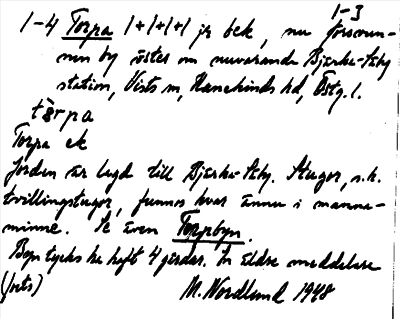 1-3
1-4 Torpa 1+1+1+1 jb bek, nu försvun-
nen by öster om nuvarande Bjärka-Säby
station, Vists sn, Hanekinds hd, Östg. l.
tɔrpa
Torpa ek
Jorden är lagd till Bjärka-Säby. Stugor, s.k.
tvillingstugor, funnos kvar ännu i manna-
minne. Se även Torpbyn.
Byn tycks ha haft 4 gårdar. En äldre meddelare
(forts) M. Nordlund 1948